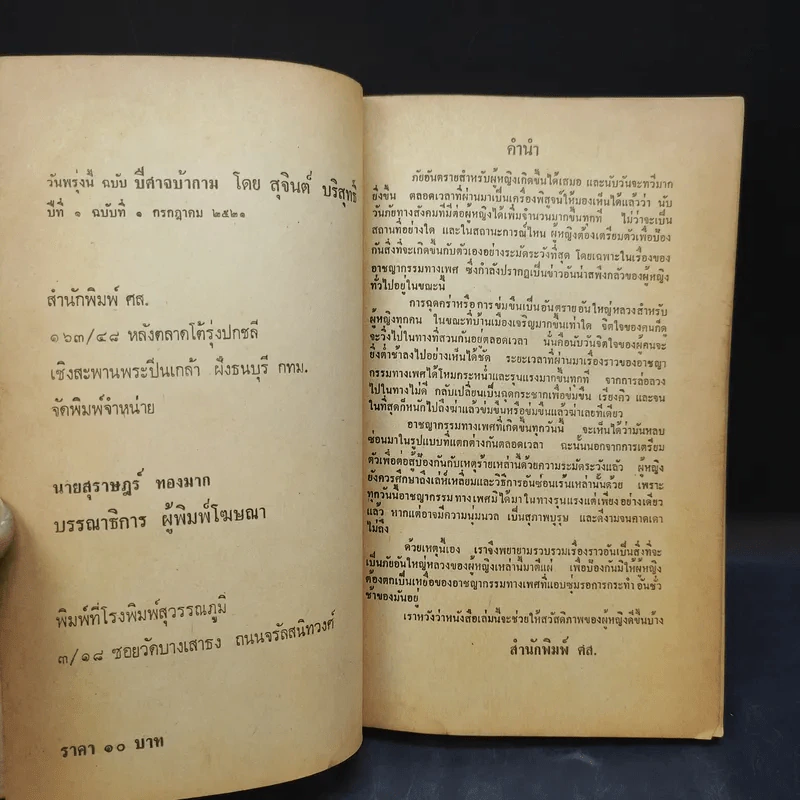 วันพรุ่งนี้ ฉบับ ปีศาจบ้ากาม โดย สุจินต์ บริสุทธิ์
ปีที่ ๑ ฉบับที่ ๑ กรกฎาคม ๒๕๒๑
สำนักพิมพ์ ศส.
๑๖๓/๔๘ หลังตลาดโต้รุ่งปกชลี
เชิงสะพานพระปิ่นเกล้า ฝั่งธนบุรี กทม.
จัดพิมพ์จำหน่าย
นายสุราษฎร์ ทองมาก
บรรณาธิการ ผู้พิมพ์โฆษณา
พิมพ์ที่โรงพิมพ์สุวรรณภูมิ
๓/๑๘ ซอยวัดบางเสาธง ถนนจรัลสนิทวงศ์
ราคา ๑๐ บาท
คำนำ
ภัยอันตรายสำหรับผู้หญิงเกิดขึ้นได้เสมอ และนับวันจะทวีมาก
ยิ่งขึ้น ตลอดเวลาที่ผ่านมาเป็นเครื่องพิสูจน์ให้มองเห็นได้แล้วว่า นับ
วันภัยทางสังคมที่มีต่อผู้หญิงได้เพิ่มจำนวนมากขึ้นทุกที ไม่ว่าจะเป็น
สถานที่อย่างใด และในสถานะการณ์ไหน ผู้หญิงต้องเตรียมตัวเพื่อป้อง
กันสิ่งที่จะเกิดขึ้นกับตัวเองอย่างระมัดระวังที่สุด โดยเฉพาะในเรื่องของ
อาชญากรรมทางเพศ ซึ่งกำลังปรากฏเป็นข่าวอันน่าสพึงกลัวของผู้หญิง
ทั่วไปอยู่ในขณะนี้
การฉุดคร่าหรือการข่มขืนเป็นอันตรายอันใหญ่หลวงสำหรับ
ผู้หญิงทุกคน ในขณะที่บ้านเมืองเจริญมากขึ้นเท่าใด จิตใจของคนก็ดู
จะวิ่งไปในทางที่สวนกันอยู่ตลอดเวลา นั้นคือนับวันจิตใจของผู้คนจะ
ยิ่งต่ำช้าลงไปอย่างเห็นได้ชัด ระยะเวลาที่ผ่านมาเรื่องราวของอาชญา
กรรมทางเพศได้โหมกระหน่ำและรุนแรงมากขึ้นทุกที จากการล่อลวง
ไปในทางไม่ดี กลับเปลี่ยนเป็นฉุดกระชากเพื่อข่มขืน เรียงคิว และจน
ในที่สุดก็หนักไปถึงฆ่าแล้วข่มขืนหรือข่มขืนแล้วฆ่าเลยทีเดียว
อาชญากรรมทางเพศที่เกิดขึ้นทุกวันนี้ จะเห็นได้ว่ามันหลบ
ซ่อนมาในรูปแบบที่แตกต่างกันตลอดเวลา ฉะนั้นนอกจากการเตรียม
ตัวเพื่อต่อสู้ป้องกันกับเหตุร้ายเหล่านี้ด้วยความระมัดระวังแล้ว ผู้หญิง
ยังควรศึกษาถึงเล่ห์เหลี่ยมและวิธีการอันซ่อนเร้นเหล่านั้นด้วย เพราะ
ทุกวันนี้อาชญากรรมทางเพศมิได้มาในทางรุนแรงแต่เพียงอย่างเดียว
แล้ว หากแต่อาจมีความนุ่มนวล เป็นสุภาพบุรุษ และดีงามจนคาดเดา
ไม่ถึง
ด้วยเหตุนี้เอง เราจึงพยายามรวบรวมเรื่องราวอันเป็นสิ่งที่จะ
เป็นภัยอันใหญ่หลวงของผู้หญิงเหล่านี้มาตีแผ่ เพื่อป้องกันมิให้ผู้หญิง
ต้องตกเป็นเหยื่อของอาชญากรรมทางเพศที่แอบซุ่มรอการกระทำอันชั่ว
ช้าของมันอยู่
เราหวังว่าหนังสือเล่มนี้จะช่วยให้สวัสดิภาพของผู้หญิงดีขึ้นบ้าง
สำนักพิมพ์ ศส.